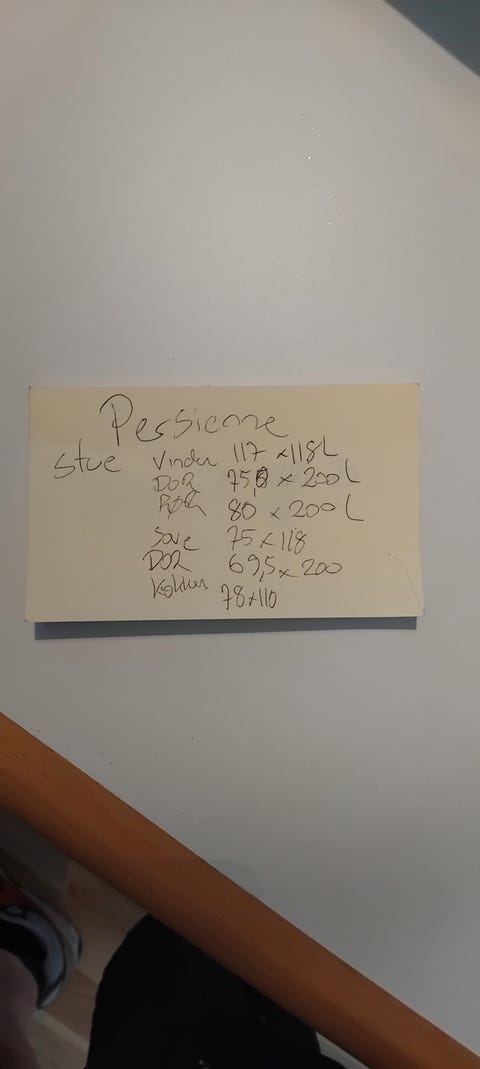 Persienne
stue Vindu 117 x 118 L
DØR 75,5 x 200 L
80 x 200 L
Sove 75 x 118
DØR 69,5 x 200
Køkken 78 x 110